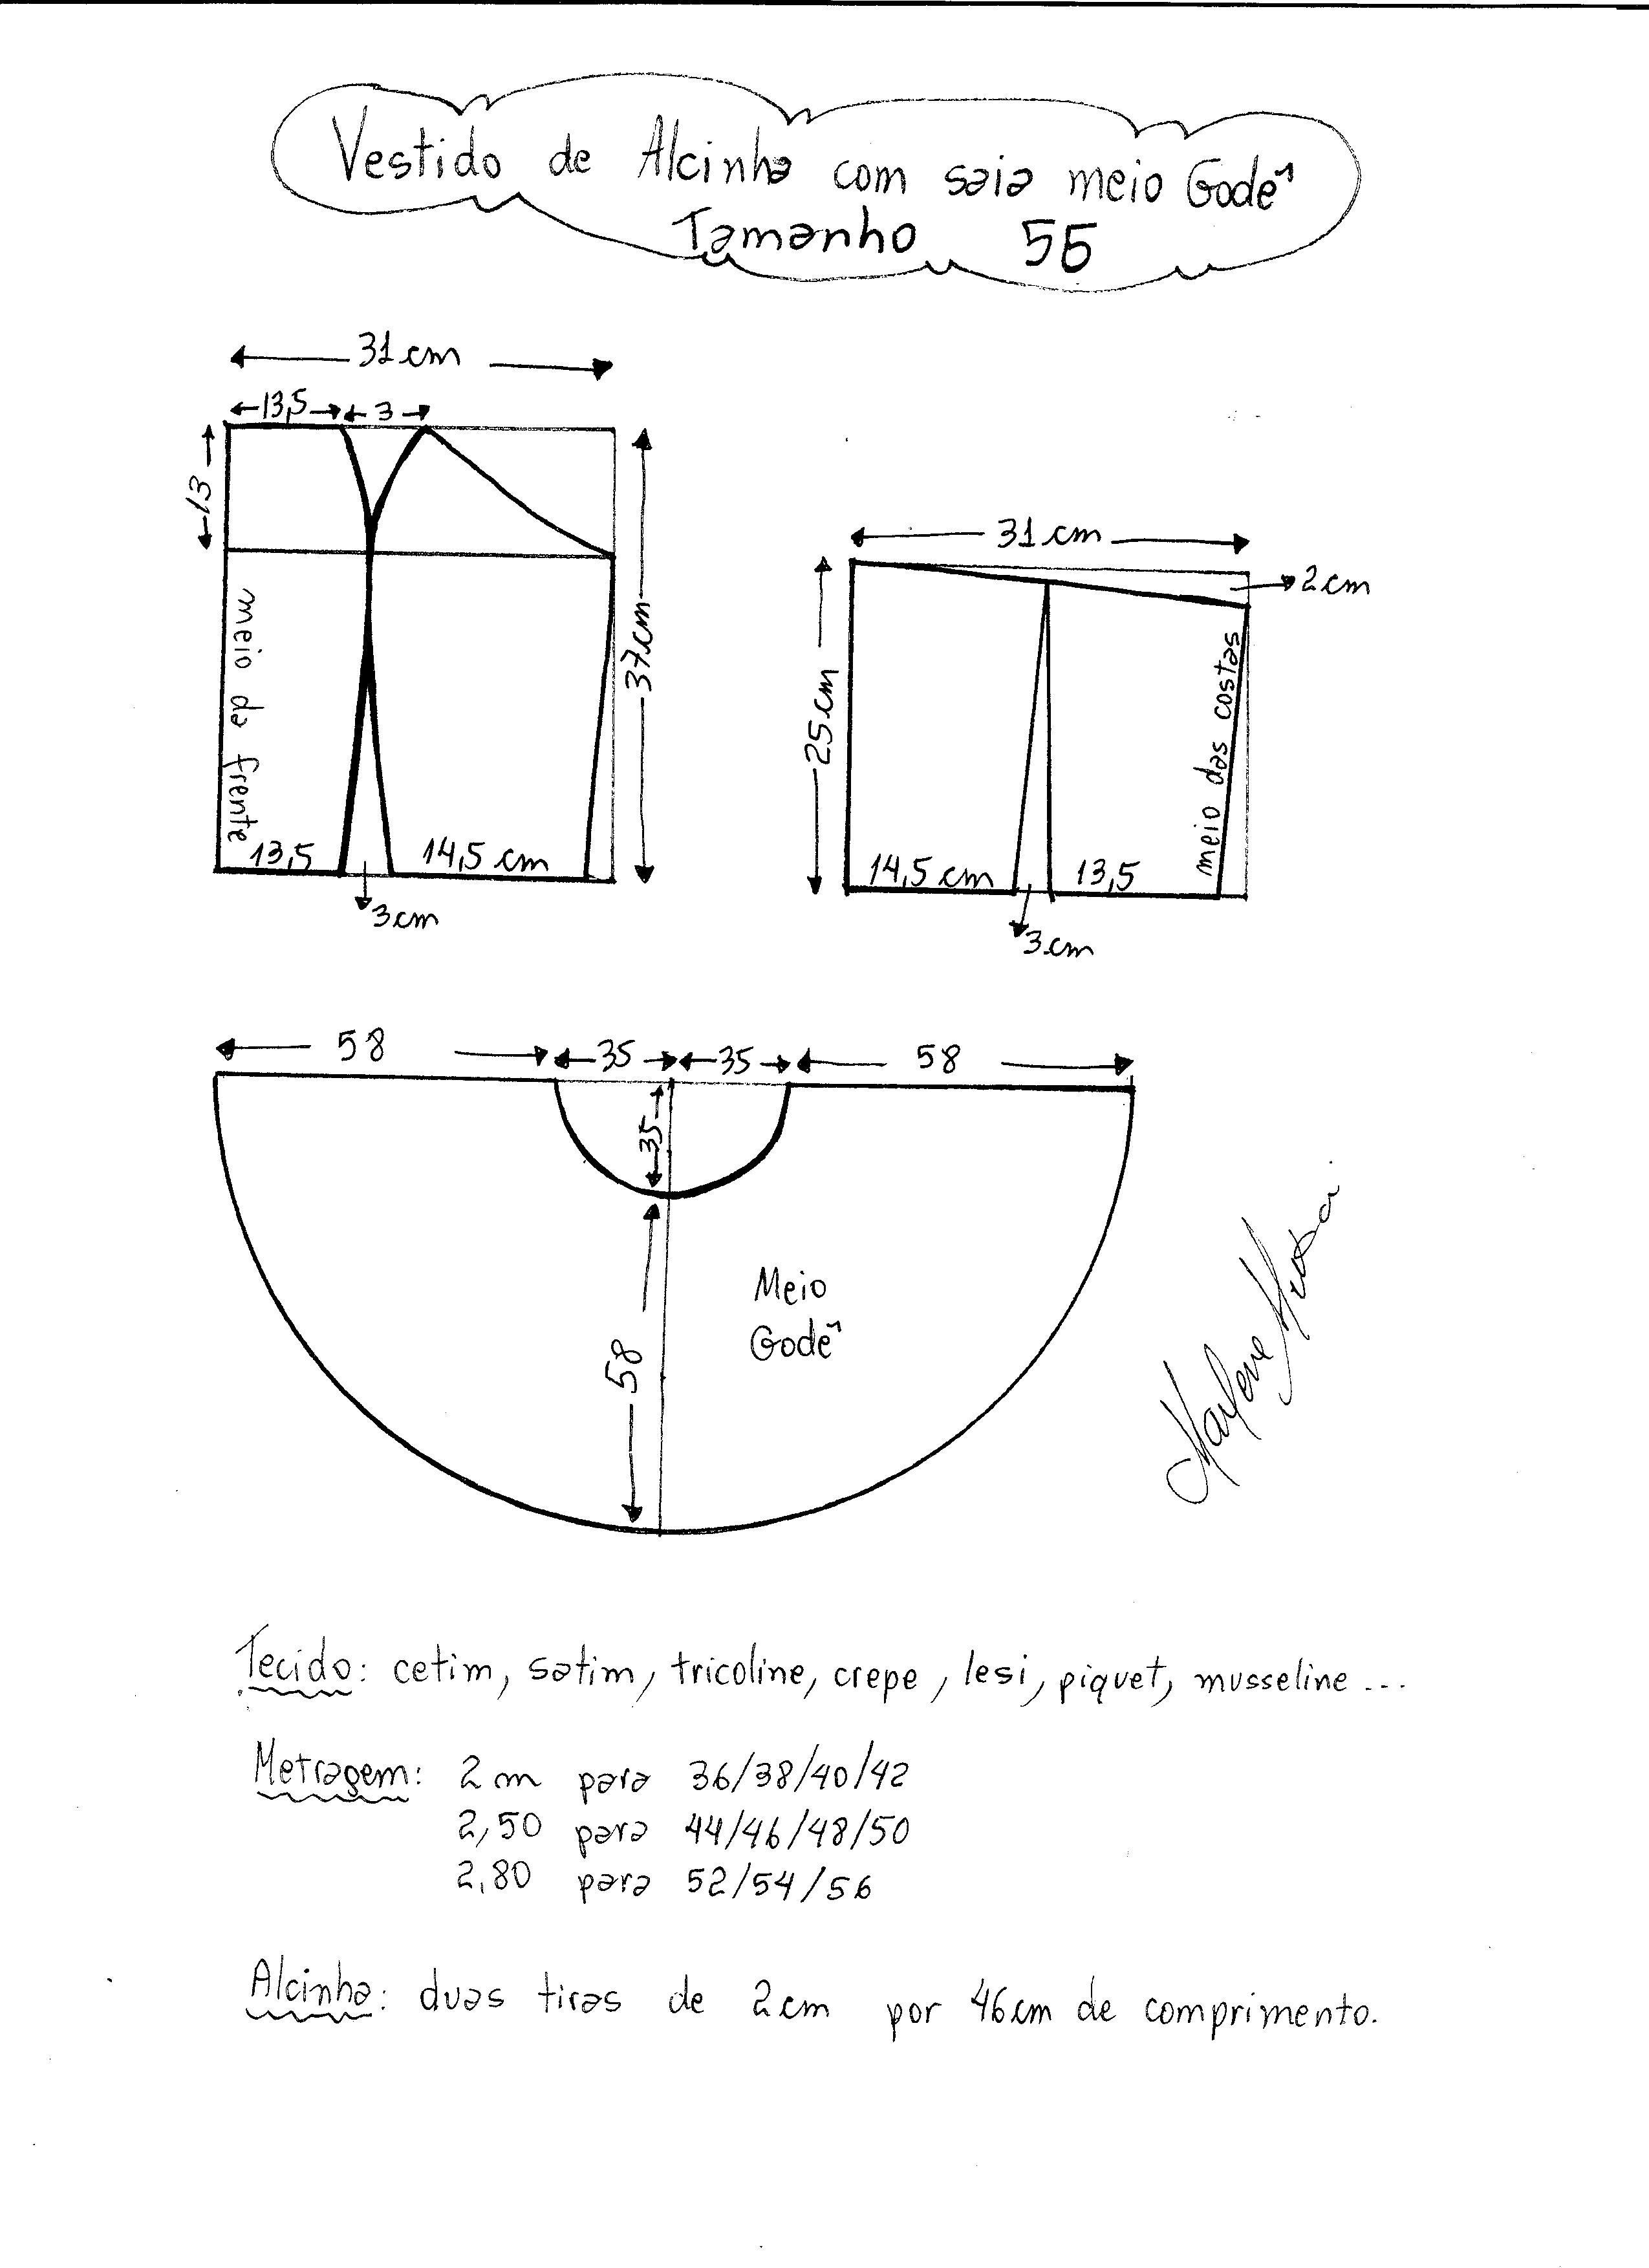 Vestido de Alcinha com saia meio Godê
Tamanho 56
31 cm
13,5 3
13
37cm
meio da frente
13,5 14,5 cm
3cm
31 cm
2 cm
25cm
meio das costas
14,5 cm 13,5
3cm
58 35 35 58
35
58
Meio
Godê
Tecido: cetim, satim, tricoline, crepe, lesi, piquet, musseline...
Metragem: 2m para 36/38/40/42
2,50 para 44/46/48/50
2,80 para 52/54/56
Alcinha: duas tiras de 2cm por 46cm de comprimento.